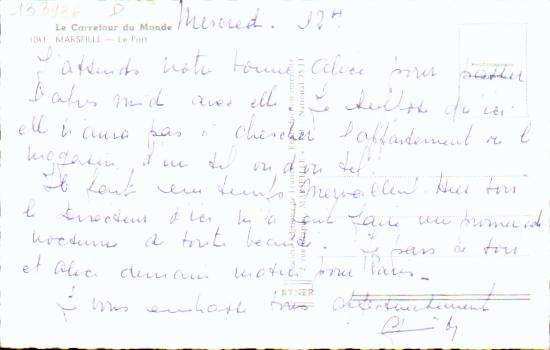 133986 D
Mercredi. 12H
Le Carrefour du Monde
1041 MARSEILLE — Le Port
J'attends notre bonne Alice pour passer
l'après midi avec elle. Je
elle n'aura pas à chercher l'appartement ou le
magasin d'un tel ou d'un tel.
Il fait un temps merveilleux. Hier soir
le Directeur d'ici m'a fait faire une promenade
nocturne de toute beauté. Je pars ce soir
et Alice demain matin pour Paris_
Je vous embrasse très affectueusement
RYNER